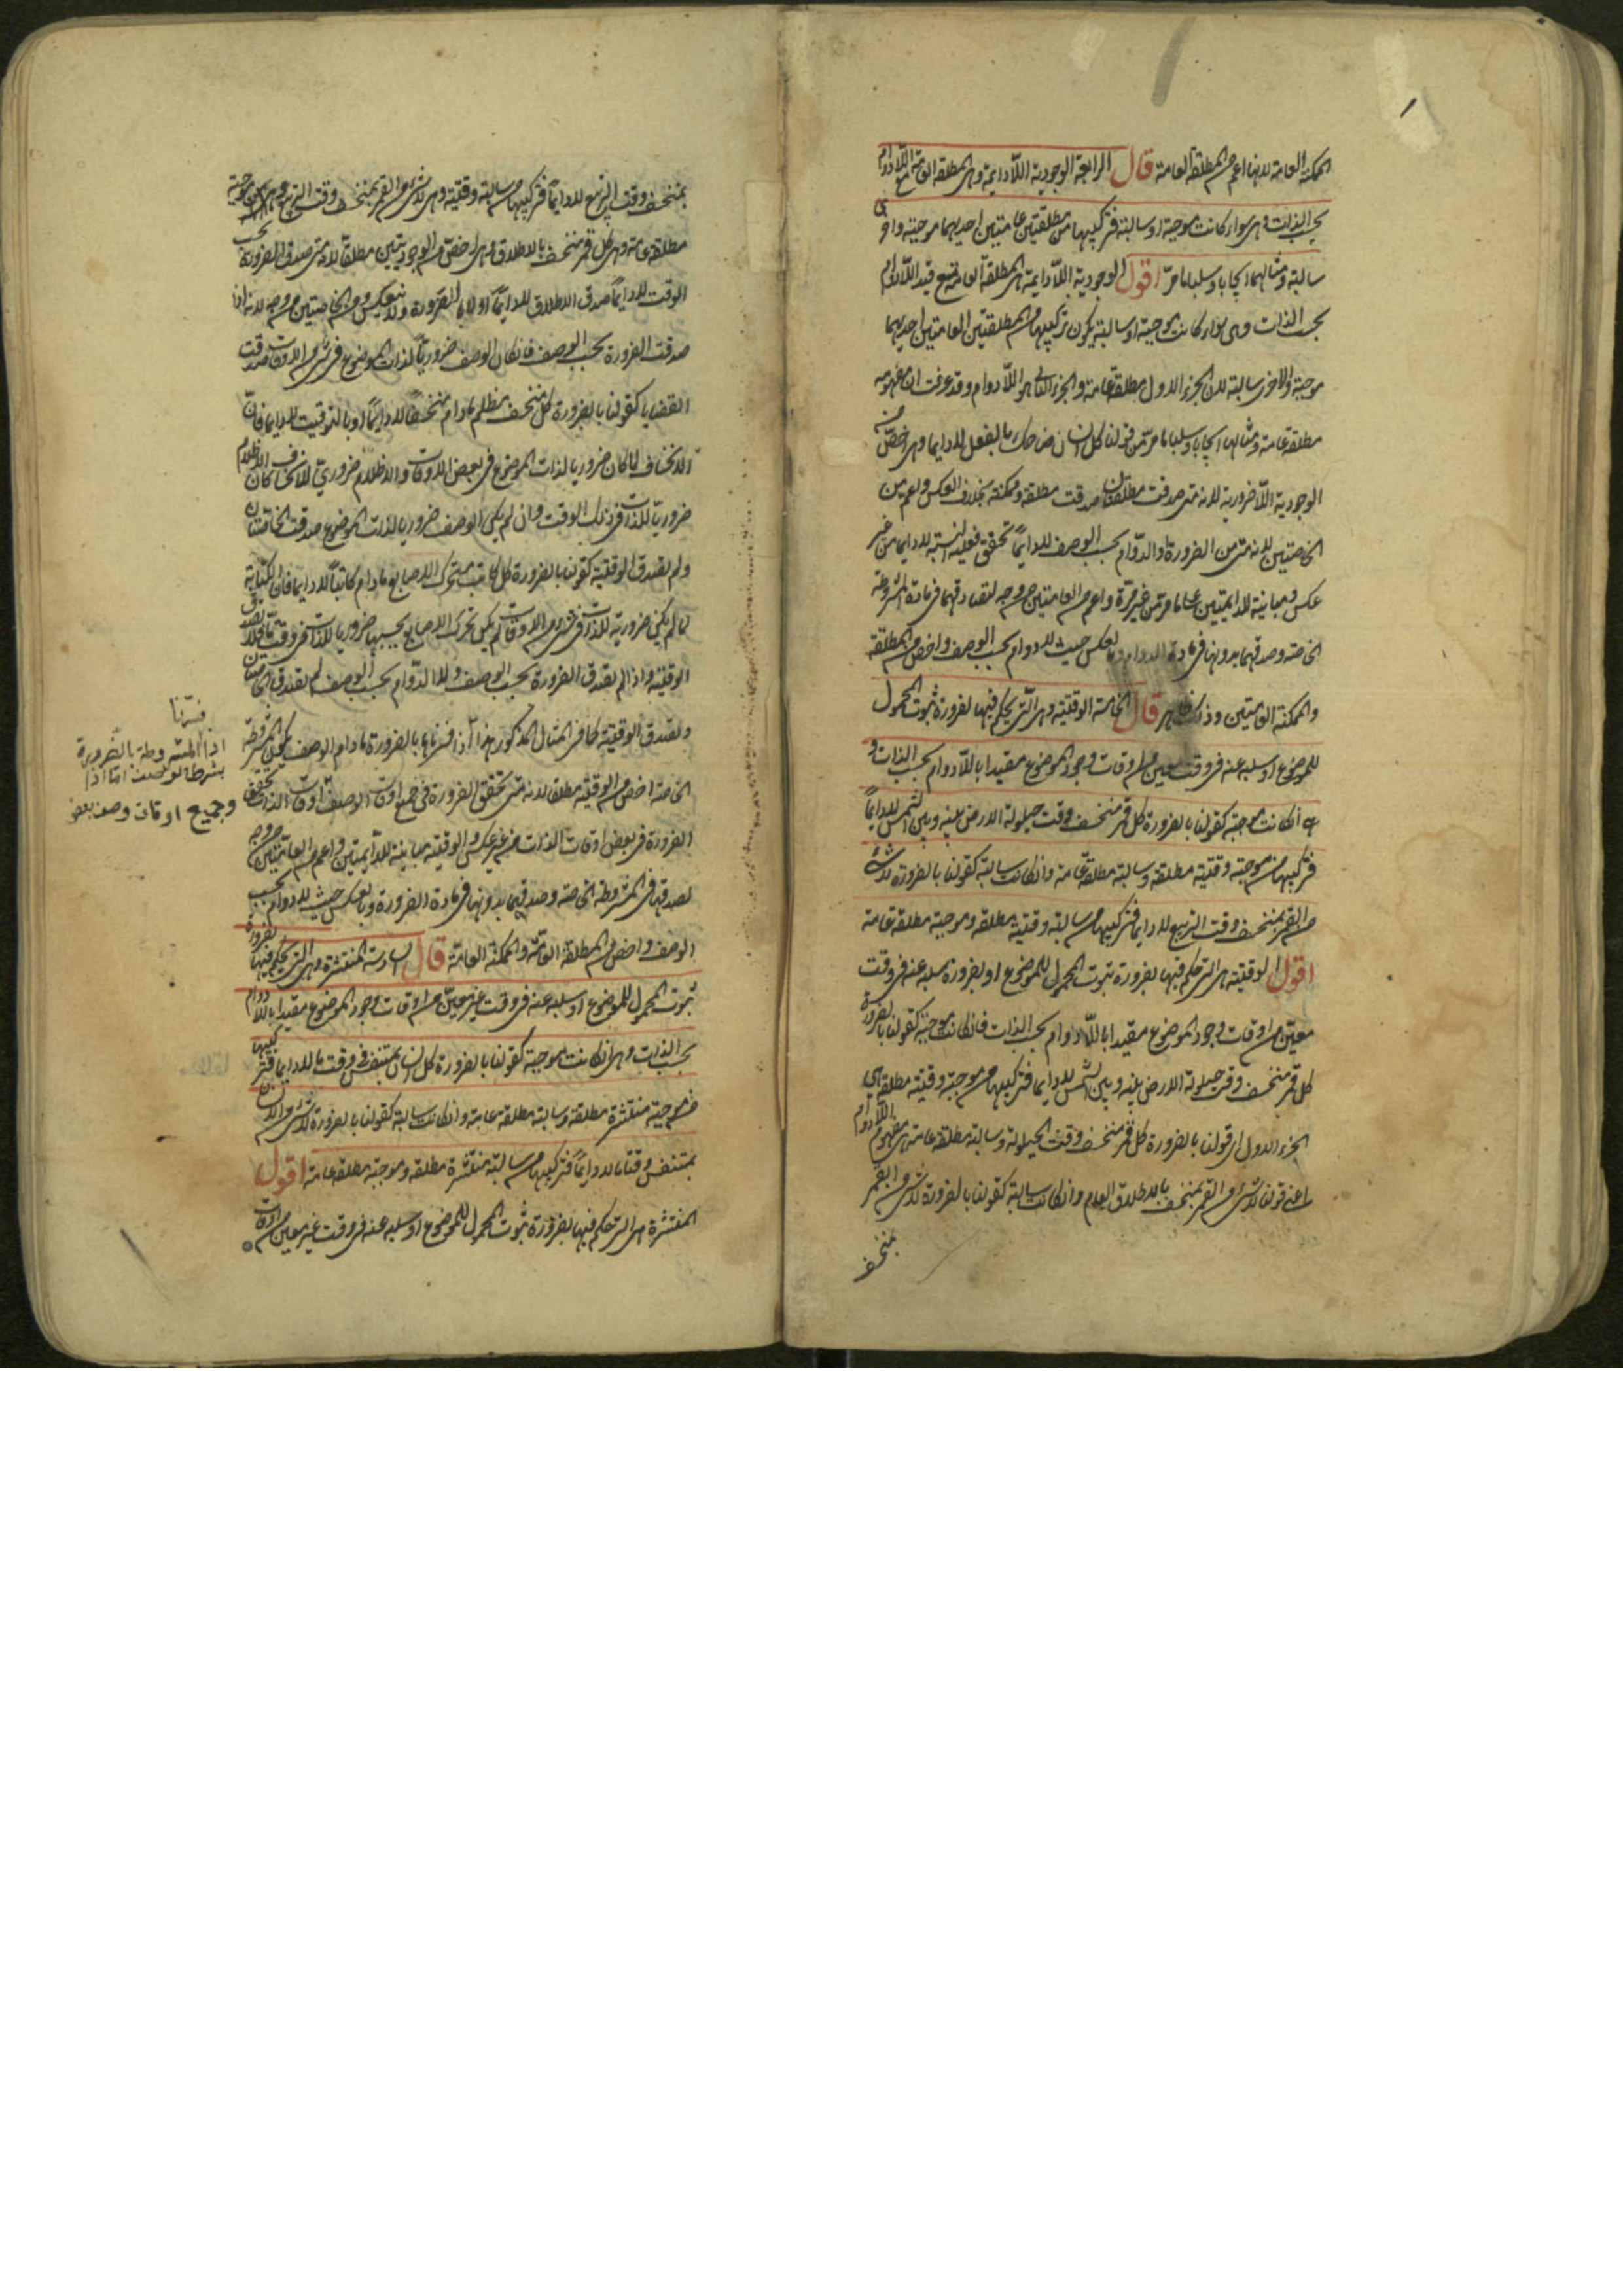 الممكنة العامة لانها اعم من المطلقة العامة قال الرابعة الوجودية اللادايمة وهى المطلقة العامة مع اللادوام
بحسب الذات وهى سواء كانت موجبة او سالبة فتركيبها من مطلقتين عامتين احديهما موجبة والاخرى
سالبة ومثالهما ايجابا وسلبا ما مرّ اقول الوجودية اللادايمة هى المطلقة العامة مع قيد اللادوام
بحسب الذات وهى سواء كانت موجبة او سالبة يكون تركيبها من المطلقتين العامتين احديهما
موجبة والاخرى سالبة لان الجزء الاول مطلقة عامة والجزء الثانى هو اللادوام وقد عرفت ان مفهومه
مطلقة عامة ومثالها ايجابا وسلبا ما مرّ من قولنا كل انسان ضاحك بالفعل لا دايما وهى اخصّ من
الوجودية اللاضرورية لانه متى صدقت مطلقتان صدقت مطلقة وممكنة بخلاف العكس واعم من
الخاصتين لانه متى من الضرورة او الدوام بحسب الوصف لا دايماً تحقق فعلية النسبة لا دايما من غير
عكس ومباينة للدايمتين على ما مرّ من غير مرة واعم من العامتين من وجه لتصادقهما فى مادة المشروطة
الخاصة وصدقهما بدونها فى مادة الدوام وبالعكس حيث لا دوام بحسب الوصف واخص من المطلقة
والممكنة العامتين وذلك ظاهر قال الخامسة الوقتية وهى التى يحكم فيها بضرورة ثبوت المحمول
للموضوع او سلبه عنه فى وقت معين من اوقات وجود الموضوع مقيدا باللادوام بحسب الذات و
هى ان كانت موجبة كقولنا بالضرورة كل قمر منخسف وقت حيلولة الارض بينه وبين الشمس لا دايماً
فتركيبها من موجبة وقتية مطلقة وسالبة مطلقة عامة وان كانت سالبة كقولنا بالضرورة لا شئ
من القمر بمنخسف وقت التربيع لا دايما فتركيبها من سالبة وقتية مطلقة وموجبة مطلقة عامة
اقول الوقتية هى التى حكم فيها بضرورة ثبوت المحمول للموضوع او بضرورة سلبه عنه فى وقت
معين من اوقات وجود الموضوع مقيدا باللادوام بحسب الذات فان كانت موجبة كقولنا بالضرورة
كل قمر منخسف وقت حيلولة الارض بينه وبين الشمس لا دايما فتركيبها من موجبة وقتية مطلقة هى
الجزء الاول اى قولنا بالضرورة كل قمر منخسف وقت الحيلولة وسالبة مطلقة عامة هى مفهوم اللادوام
اعنى قولنا لا شئ من القمر بمنخسف بالاطلاق العام وان كانت سالبة كقولنا بالضرورة لا شئ من القمر
بمنخسف
بمنخسف وقت التربيع لا دايماً فتركيبها من سالبة وقتية وهى لا شئ من القمر بمنخسف وقت التربيع وموجبة
مطلقة عامة وهى كل قمر منخسف بالاطلاق وهى اخصّ من الوجوديتين مطلقا لانه متى صدق الضرورة بحسب
الوقت لا دايماً صدق الاطلاق لا دايماً او لا بالضرورة ولا ينعكس ومن الخاصتين من وجه لانه اذا
صدقت الضرورة بحسب الوصف فان كان الوصف ضرورياً لذات الموضوع فى شئ من الاوقات صدقت
القضايا كقولنا بالضرورة كل منخسف مظلم ما دام منخسفاً لا دايماً او بالتوقيت لا دايما فانّ
الانخساف لما كان ضروريا لذات الموضوع فى بعض الاوقات والاظلام ضرورىّ للانخساف كان الاظلام
ضروريّا للذات فى ذلك الوقت وان لم يكن الوصف ضروريا لذات الموضوع صدقت الخاصتان
ولم تصدق الوقتية كقولنا بالضرورة كل كاتب متحرك الاصابع ما دام كاتباً لا دايما فان الكتابة
لما لم يكن ضرورية للذات فى شئ من الاوقات لم يكن تحرك الاصابع بحسبها ضروريا للذات فى وقت ما فلا تصدق
الوقتية واذا لم تصدق الضرورة بحسب الوصف ولا الدوام بحسب الوصف لم تصدق الخاصتين
وتصدق الوقتية كما فى المثال المذكور هذا اذا فسرناها بالضرورة ما دام الوصف يكون المشروطة
الخاصة اخص من الوقتية مطلقا لانه متى تحقق الضرورة فى جميع اوقات الوصف اوقات الذات تحقق
الضرورة فى بعض اوقات الذات من غير عكس والوقتية مباينة للدايمتين واعم من العامتين من وجه
لصدقها فى المشروطة الخاصة وصدقهما بدونها فى مادة الضرورة وبالعكس حيث لا دوام بحسب
الوصف واخص من المطلقة العامة والممكنة العامة قال السادسة المنتشرة وهى التى يحكم فيها بضرورة
ثبوت المحمول للموضوع او سلبه عنه فى وقت غير معين من اوقات وجود الموضوع مقيدا باللادوام
بحسب الذات وهى ان كانت موجبة كقولنا بالضرورة كل انسان متنفس فى وقت ما لا دايما فتركيبها
من موجبة منتشرة مطلقة وسالبة مطلقة عامة وان كانت سالبة كقولنا بالضرورة لا شئ من الانسان
بمتنفس وقتا ما لا دايماً فتركيبها من سالبة منتشرة مطلقة وموجبة مطلقة عامة اقول
المنتشرة هى التى حكم فيها بضرورة ثبوت المحمول للموضوع او سلبه عنه فى وقت غير معين من اوقات
فسّرنا
اذا المشروطة بالضرورة
بشرط الوصف اما اذا
وجميع اوقات وصف بعض